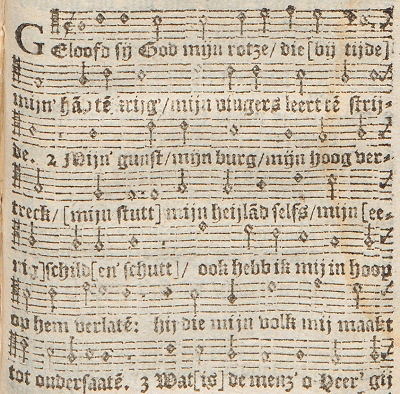 GEloofd sij God mijn rotze / die [bij tijde]
mijn' hãdtẽ krijg' / mijn vingers leert tẽ strij-
de. 2 Mijn' gunst / mijn burg / mijn hoog ver-
treck / [mijn stutt] mijn heijlãd selfs / mijn [ee-
rig] schild [en' schutt] / ook hebb ik mij in hoop
op hem verlatẽ: hij die mijn volk mij maakt
tot ondersaatẽ. 3 Wat [is] de menz' o Heer' gij